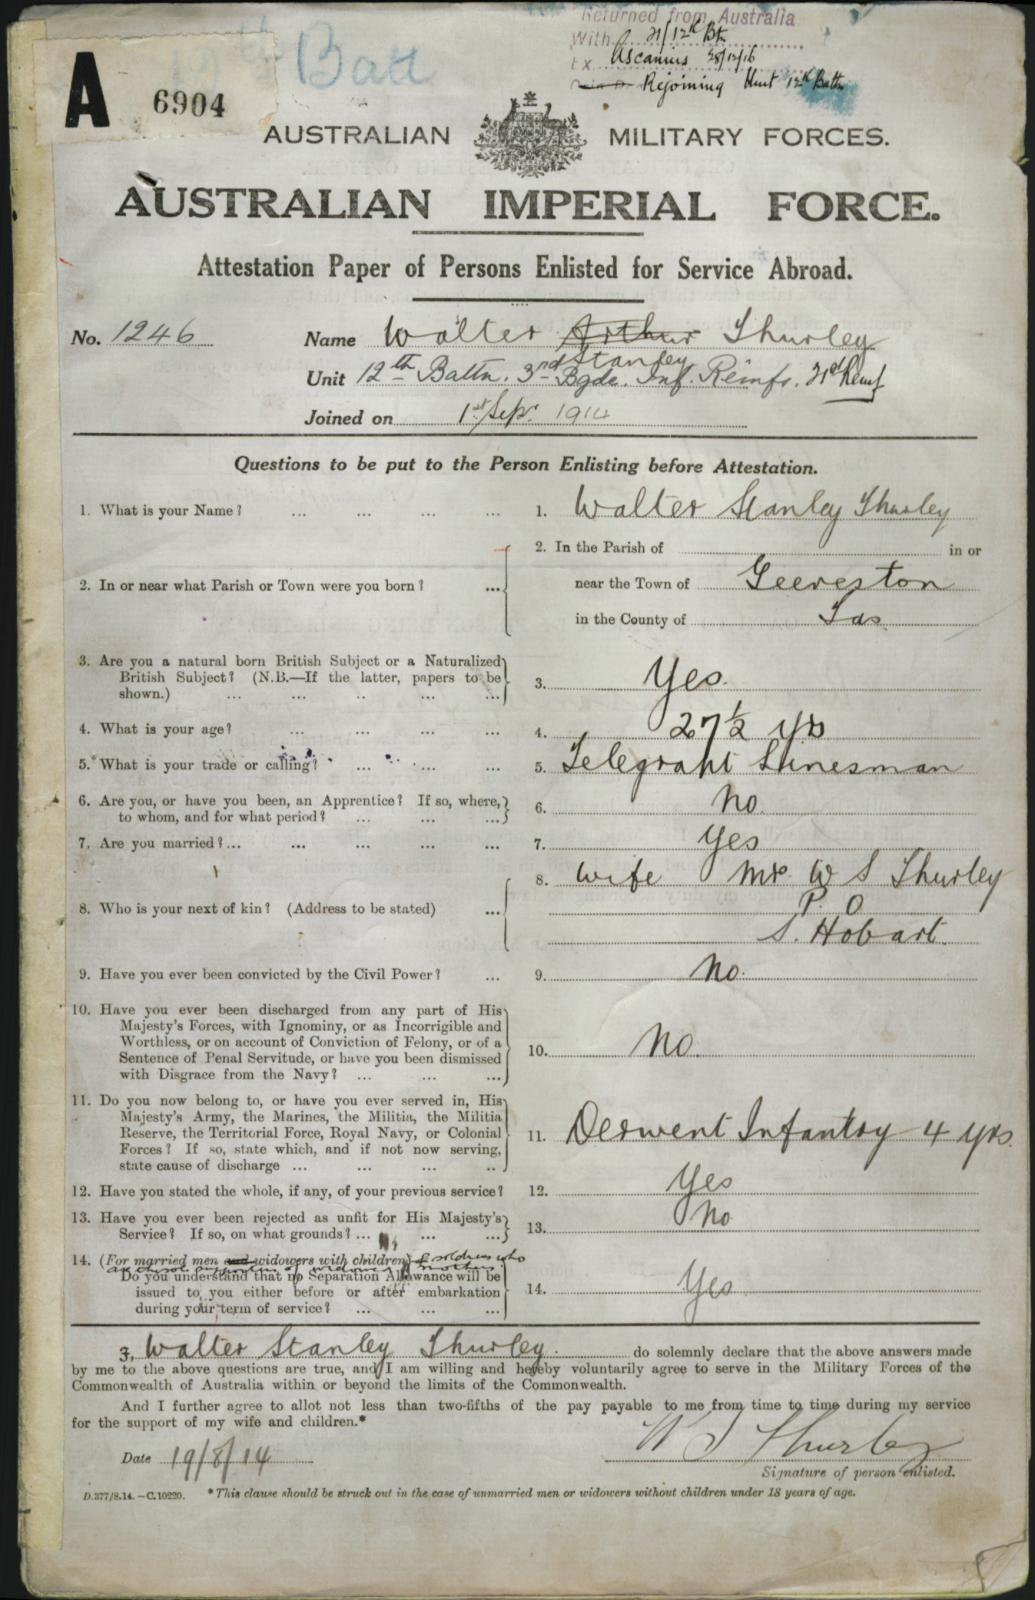 Batt
Returned from Australia
With 21/12th Bt.
Ex Ascanius 28/12/16
Rejoining Unit 12th Battn
A 6904
AUSTRALIAN MILITARY FORCES.
AUSTRALIAN IMPERIAL FORCE.
Attestation Paper of Persons Enlisted for Service Abroad.
No. 1246 Name Walter Arthur Thurley
Stanley
Unit 12th Battn. 3rd Bgde. Inf. Reinfs. 21st Reinf
Joined on 1st Sepr 1914
Questions to be put to the Person Enlisting before Attestation.
1. What is your Name? ... ... ... ... 1. Walter Stanley Thurley
2. In or near what Parish or Town were you born? ... 2. In the Parish of in or
near the Town of Geeveston
in the County of Tas
3. Are you a natural born British Subject or a Naturalized
British Subject? (N.B.—If the latter, papers to be
shown.) ... ... ... ... 3. Yes.
4. What is your age? ... ... ... ... 4. 27½ yrs
5. What is your trade or calling? ... ... ... 5. Telegraph Linesman
6. Are you, or have you been, an Apprentice? If so, where,
to whom, and for what period? ... ... ... 6. No.
7. Are you married? ... ... ... ... ... 7. Yes
8. Who is your next of kin? (Address to be stated) ... 8. Wife Mrs W S Thurley
P. O
S. Hobart.
9. Have you ever been convicted by the Civil Power? ... 9. No.
10. Have you ever been discharged from any part of His
Majesty's Forces, with Ignominy, or as Incorrigible and
Worthless, or on account of Conviction of Felony, or of a
Sentence of Penal Servitude, or have you been dismissed
with Disgrace from the Navy? ... ... ... 10. No.
11. Do you now belong to, or have you ever served in, His
Majesty's Army, the Marines, the Militia, the Militia
Reserve, the Territorial Force, Royal Navy, or Colonial
Forces? If so, state which, and if not now serving,
state cause of discharge ... ... ... ... 11. Derwent Infantry 4 yrs.
12. Have you stated the whole, if any, of your previous service? 12. Yes
13. Have you ever been rejected as unfit for His Majesty's
Service? If so, on what grounds? ... ... 13. No
14. (For married men and widowers with children) & soldiers who
are the sole supporters of widowed mothers.
Do you understand that no Separation Allowance will be
issued to you either before or after embarkation
during your term of service? ... ... ... 14. Yes
I, Walter Stanley Thurley. do solemnly declare that the above answers made
by me to the above questions are true, and I am willing and hereby voluntarily agree to serve in the Military Forces of the
Commonwealth of Australia within or beyond the limits of the Commonwealth.
And I further agree to allot not less than two-fifths of the pay payable to me from time to time during my service
for the support of my wife and children.*
Date 19/8/14 W S Thurley
Signature of person enlisted.
D.377/8.14.—C.10220. *This clause should be struck out in the case of unmarried men or widowers without children under 18 years of age.